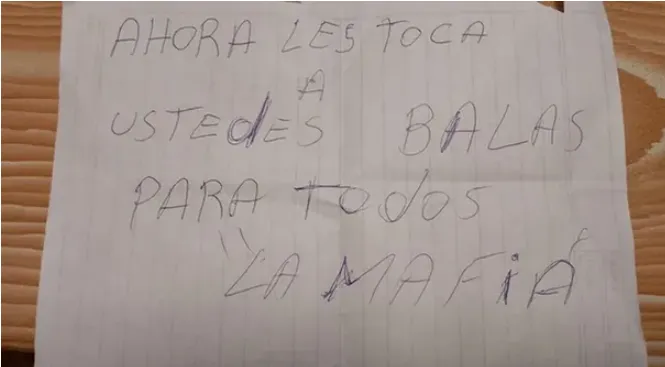 AHORA LES TOCA
A
USTEdES BALAS
PARA TOdOS
"LA MAFiA"